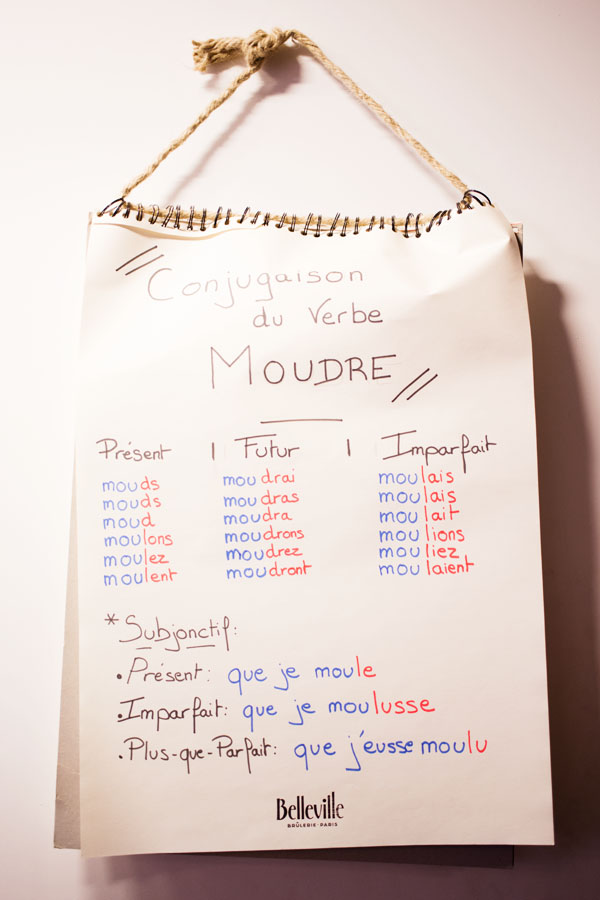 Conjugaison
du Verbe
MOUDRE
Présent | Futur | Imparfait
mouds moudrai moulais
mouds moudras moulais
moud moudra moulait
moulons moudrons moulions
moulez moudrez mouliez
moulent moudront moulaient
* Subjonctif:
• Présent: que je moule
• Imparfait: que je moulusse
• Plus-que-Parfait: que j'eusse moulu
Belleville
BRÛLERIE • PARIS